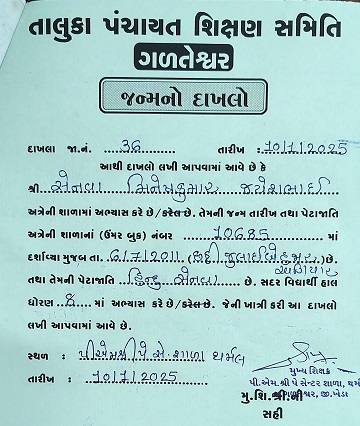 તાલુકા પંચાયત શિક્ષણ સમિતિ
ગળતેશ્વર
જન્મનો દાખલો
દાખલા જા.નં. 36 તારીખ : 10/1/2025
આથી દાખલો લખી આપવામાં આવે છે કે
શ્રી સેનવા મિતેષકુમાર જયેશભાઈ
અત્રેની શાળામાં અભ્યાસ કરે છે / કરેલ છે. તેમની જન્મ તારીખ તથા પેટાજાતિ
અત્રેની શાળાનાં (ઉંમર બુક) નંબર 10685 માં
દર્શાવ્યા મુજબ તા. 6/7/2011 (છઠ્ઠી જુલાઈ બે હજાર અગિયાર) છે.
તથા તેમની પેટાજાતિ હિન્દુ સેનવા છે. સદર વિદ્યાર્થી હાલ
ધોરણ 8 માં અભ્યાસ કરે છે / કરેલ છે. જેની ખાત્રી કરી આ દાખલો
લખી આપવામાં આવે છે.
સ્થળ : પીએમશ્રી પે સે. શાળા થર્મલ
તારીખ : 10/1/2025
મુખ્ય શિક્ષક
પી.એમ.શ્રી પે સેન્ટર શાળા, થર્મ
ગળતેશ્વર, જી.ખેડા
મુ.શિ.શ્રી.ની
સહી